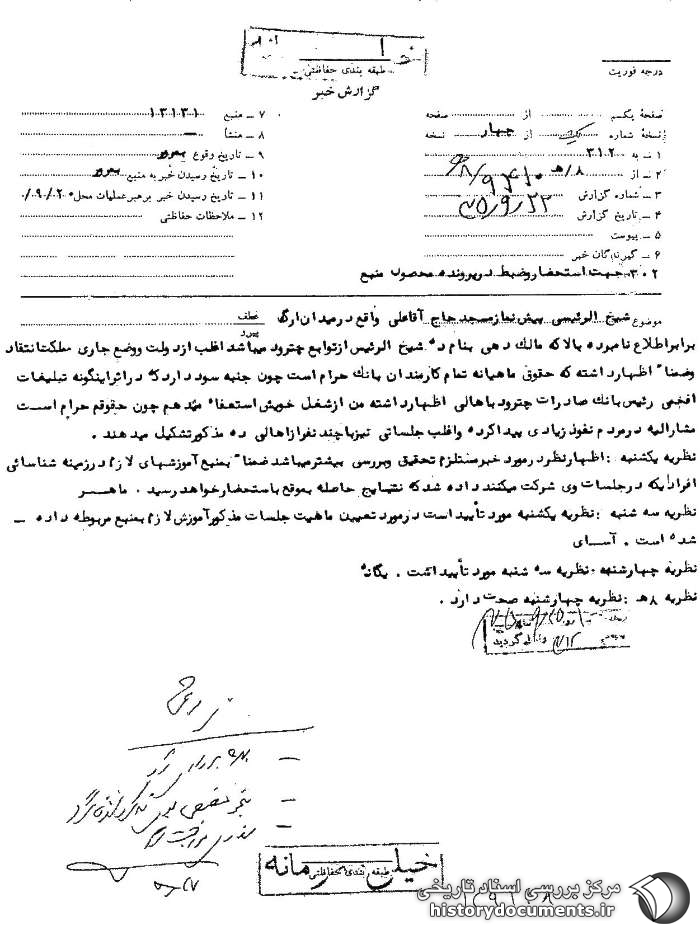 طبقه بندی حفاظتی
گزارش خبر
درجه فوریت
صفحه یکم از صفحه
نسخه شماره یک از چهار نسخه
۱ ـ به ۳۱۲
۲ ـ از ۸/هـ
۳ ـ شماره گزارش
۴ ـ تاریخ گزارش ۲۵/۹/۲۲
۵ ـ پیوست
۶ ـ گیرندگان خبر
۷ ـ منبع ۱۳۱۳۱
۸ ـ منشأ ـ
۹ ـ تاریخ وقوع بمرور
۱۰ ـ تاریخ رسیدن خبر به منبع بمرور
۱۱ ـ تاریخ رسیدن خبر برهبر عملیات محل
۱۲ ـ ملاحظات حفاظتی
۳۰۲ـ جهت استحضار و ضبط در پرونده محصول منبع
موضوع شیخ الرئیسی پیش نماز مسجد حاج آقاعلی واقع در میدان ارگ
عطف
پیرو
برابر اطلاع نامبرده بالا که مالک دهی بنام ده شیخ الرئیس از توابع چترود میباشد اغلب از دولت و وضع جاری مملکت انتقاد
وضمنا" اظهار داشته که حقوق ماهیانه تمام کارمندان بانک حرام است چون جنبه سود دارد که در اثر اینگونه تبلیغات
انجمی رئیس بانک صادرات چترود باهالی اظهار داشته من از شغل خویش استعفاء میدهم چون حقوقم حرام است
مشارالیه در مردم نفوذ زیادی پیدا کرده و اغلب جلساتی نیز با چند نفر از اهالی ده مذکور تشکیل میدهند .
نظریه یکشنبه : اظهار نظر در مورد خبر مستلزم تحقیق و بررسی بیشتر میباشد ضمنا" بمنبع آموزشهای لازم در زمینه شناسائی
افرادیکه در جلسات وی شرکت میکنند داده شد که نتنهایج حاصله بموقع باستحضار خواهد رسید . ماهر
نظریه سه شنبه : نظریه یکشنبه مورد تأیید است در مورد تعیین ماهیت جلسات مذکور آموزش لازم بمنبع مربوطه داده ـ
شده است . آسای
نظریه چهارشنبه : نظریه سه شنبه مورد تأیید است . یگانه
نظریه ۸ هـ : نظریه چهارشنبه صحت دارد .
گردید
خیلی محرمانه
طبقه بندی حفاظتی
مرکز بررسی اسناد تاریخی
historydocuments.ir